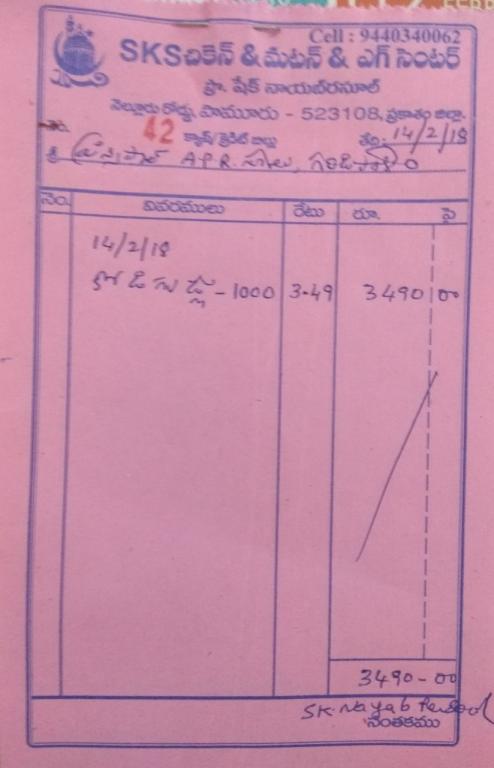 Cell : 9440340062
SKS చికెన్ & మటన్ & ఎగ్ సెంటర్
ప్రొ. షేక్ నాయబ్‌రసూల్
నెల్లూరు రోడ్డు, పామూరు - 523108, ప్రకాశం జిల్లా.
నెం. 42 క్యాష్/క్రెడిట్ బిల్లు తేది. 14/2/18
శ్రీ ప్రిన్సిపాల్ A.P.R.
నెం. వివరములు రేటు రూ. పై
14/2/18
కోడి గుడ్లు - 1000 3-49 3490 00
3490-00
SK. Nayab Rasool
సంతకము